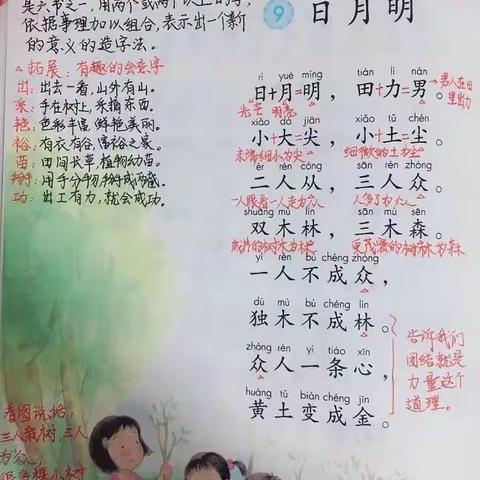 依据事理加以组合,表示出一个新
的意义的造字法。
拓展:有趣的会意字
出:出去一看,山外有山。
采:手在树上,采摘东西。
艳:色彩丰富,鲜艳美丽。
裕:有衣有谷,富裕之家。
苗:田间长草,植物幼苗。
掰:用手分物,掰成两截。
功:出工有力,就会成功。
看图说话,
三人栽树,三人
为众,
9 日月明
rì yuè míng tián lì nán
日+月=明,田+力=男。
男人在田
里出力
光芒 明亮
xiǎo dà jiān xiǎo tǔ chén
小+大=尖,小+土=尘。
末端细小为尖 细微的土为尘
èr rén cóng sān rén zhòng
二人从,三人众。
一人跟着一人走为从
shuāng mù lín sān mù sēn
双木林,三木森。
成片的树木为林 更茂密的树林为森
yì rén bù chéng zhòng
一人不成众,
dú mù bù chéng lín
独木不成林。
zhòng rén yì tiáo xīn
众人一条心,
huáng tǔ biàn chéng jīn
黄土变成金。
告诉我们
团结就是
力量这个
道理。